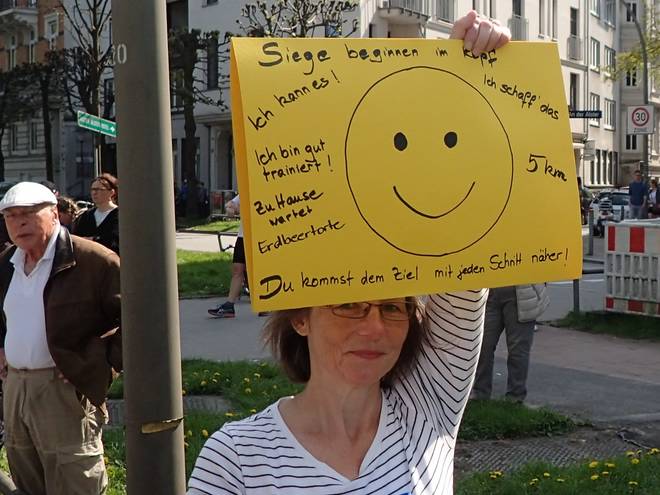 Siege beginnen im Kopf
Ich kann es!
Ich schaff' das
Ich bin gut
trainiert!
5 km
Zu Hause
wartet
Erdbeertorte
Du kommst dem Ziel mit jeden Schritt näher!
30
ZONE